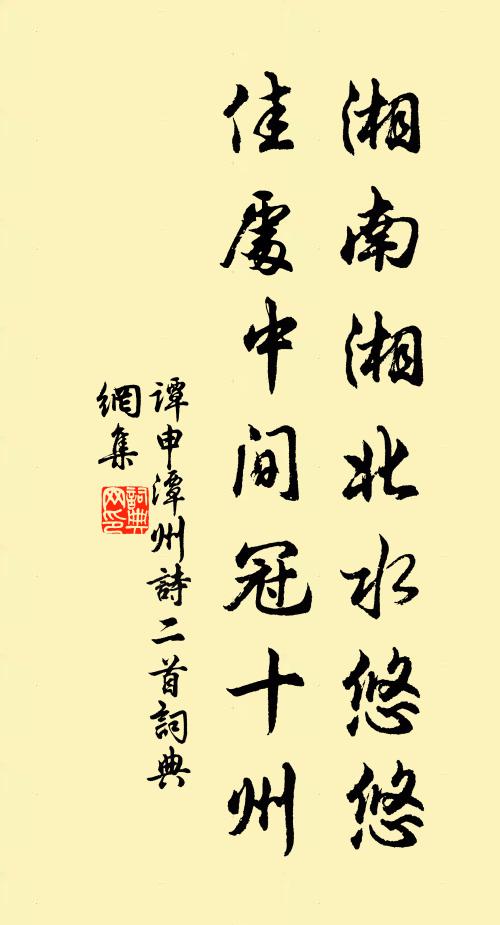 湘南湘北水悠悠
佳處中間冠十州
譚申潭州詩二首詞典
網集
詞典
网印